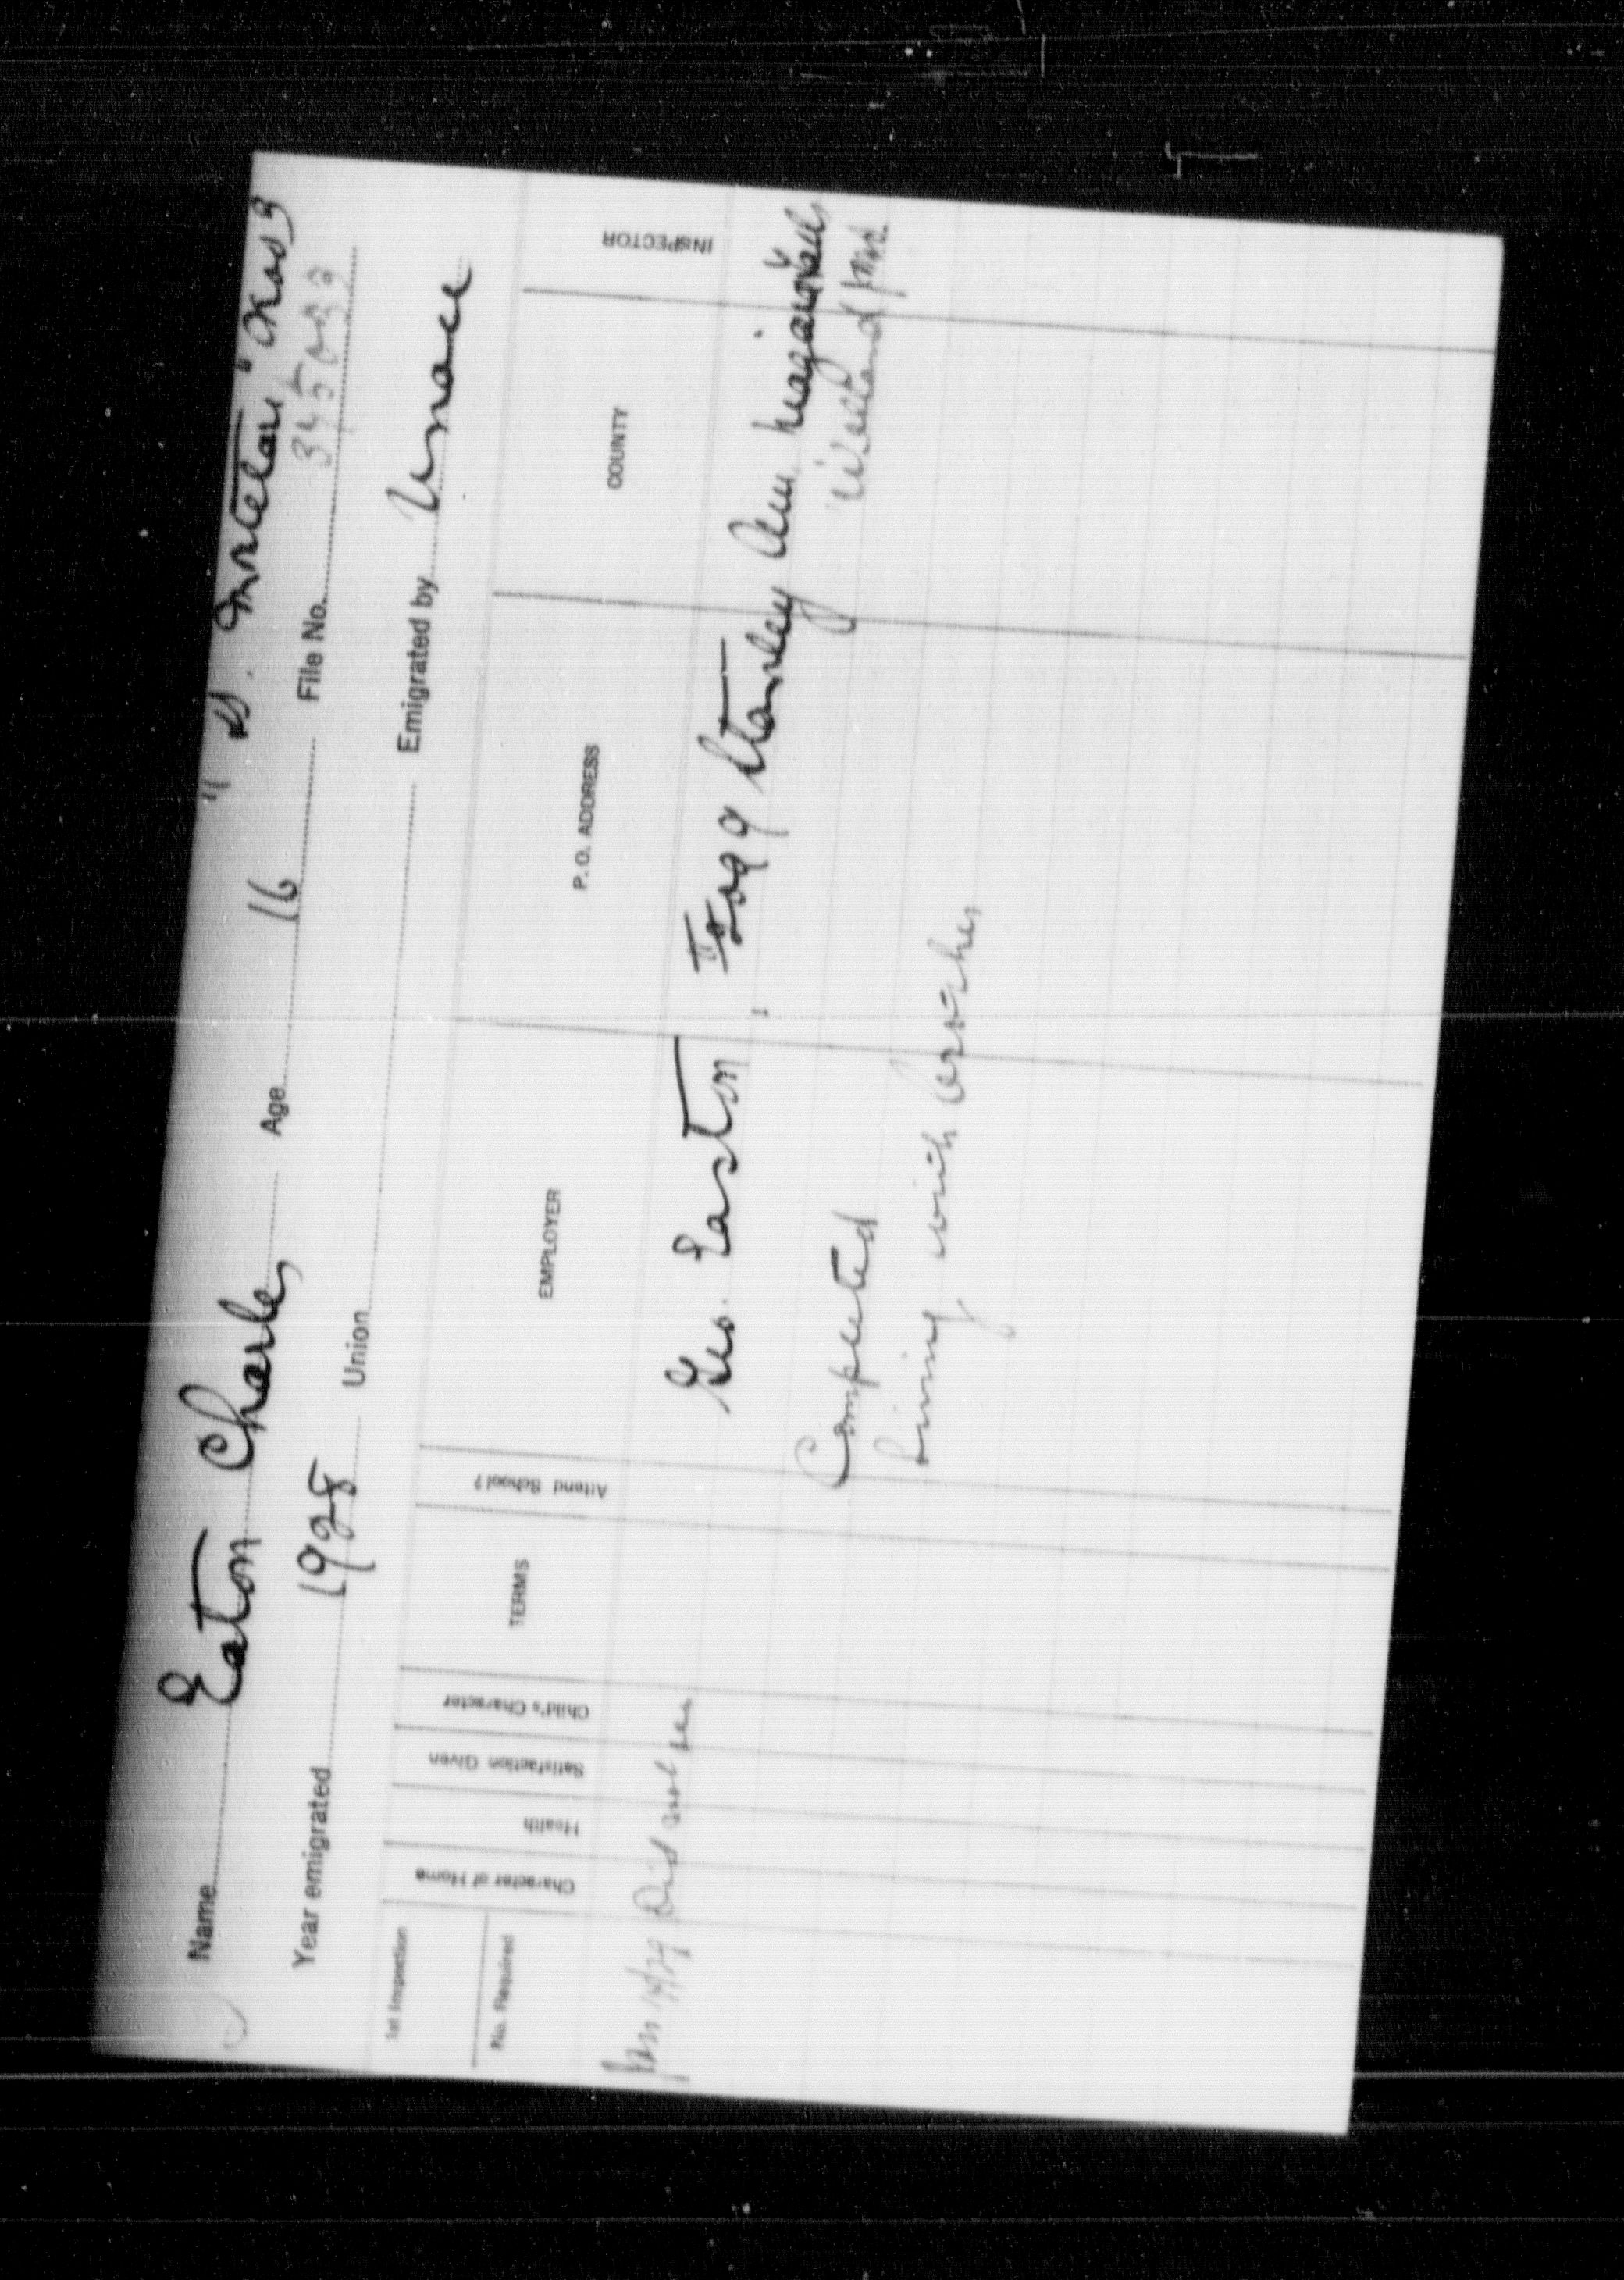 Name Eaton Charles Age 16 "
Year emigrated 1928 File No.
Union Emigrated by
1st Inspection
No. Required
Character of Home
Health
Satisfaction Given
Child's Character
TERMS
Attend School?
EMPLOYER
P. O. ADDRESS
COUNTY
INSPECTOR
Did not see
Geo. Easton, Stanley Ave. Niagara Falls
Welland
Completed
Living with brother